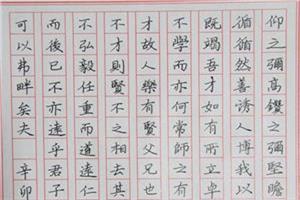 仰之彌高鑽之彌堅瞻
循循然善誘人博我以
既竭吾才如有所立卓
不學而亦何常師之有
才故人樂有賢父兄也
不才則賢不之相去其
不弘毅任重而道遠仁
而後已不亦遠乎君子
可以弗畔矣夫 辛卯